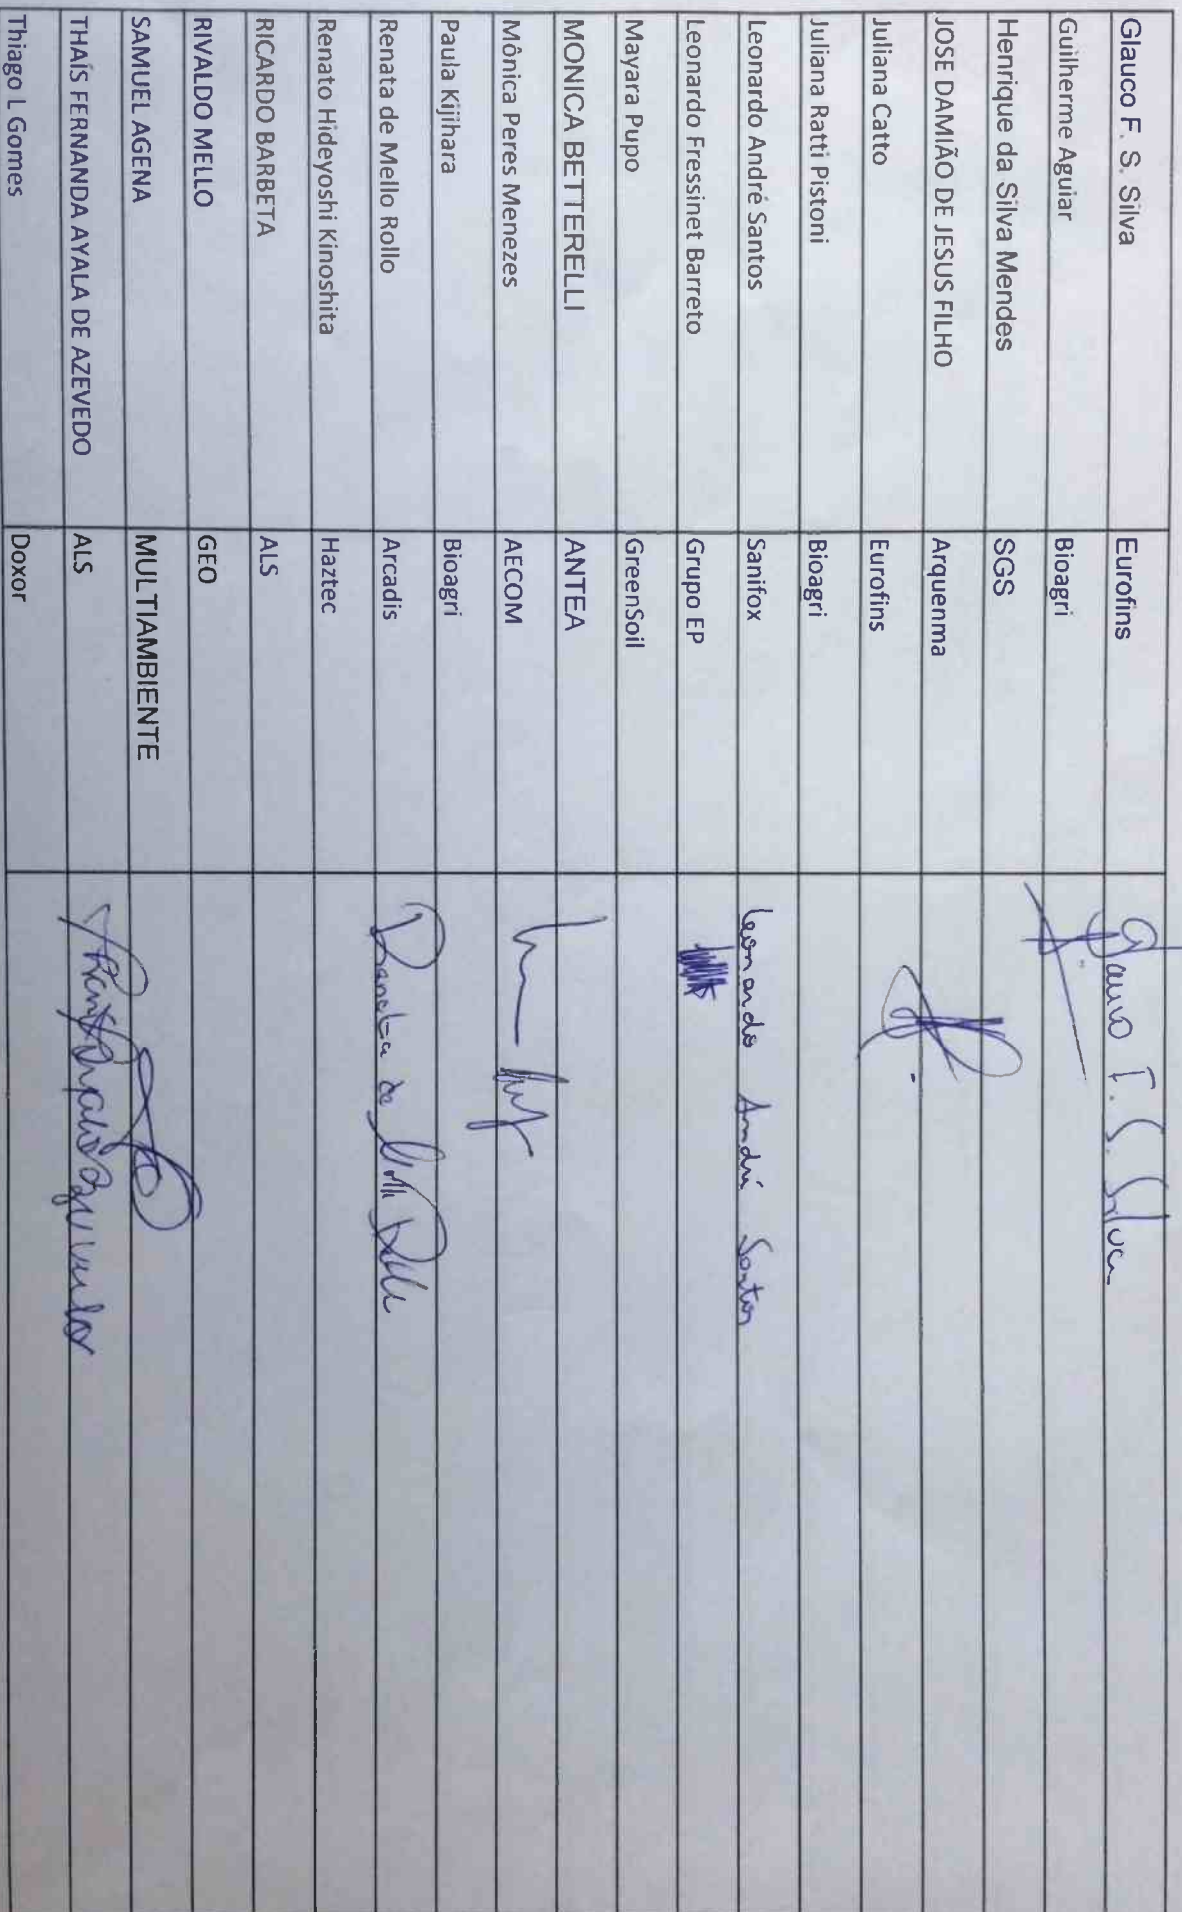 Glauco F. S. Silva Eurofins Glauco F. S. Silva
Guilherme Aguiar Bioagri
Henrique da Silva Mendes SGS
JOSE DAMIÃO DE JESUS FILHO Arquenma
Juliana Catto Eurofins
Juliana Ratti Pistoni Bioagri
Leonardo André Santos Sanifox Leonardo André Santos
Leonardo Fressinet Barreto Grupo EP
Mayara Pupo GreenSoil
MONICA BETTERELLI ANTEA
Mônica Peres Menezes AECOM
Paula Kijihara Bioagri
Renata de Mello Rollo Arcadis Renata de Mello Rollo
Renato Hideyoshi Kinoshita Haztec
RICARDO BARBETA ALS
RIVALDO MELLO GEO
SAMUEL AGENA MULTIAMBIENTE
THAÍS FERNANDA AYALA DE AZEVEDO ALS
Thiago L Gomes Doxor